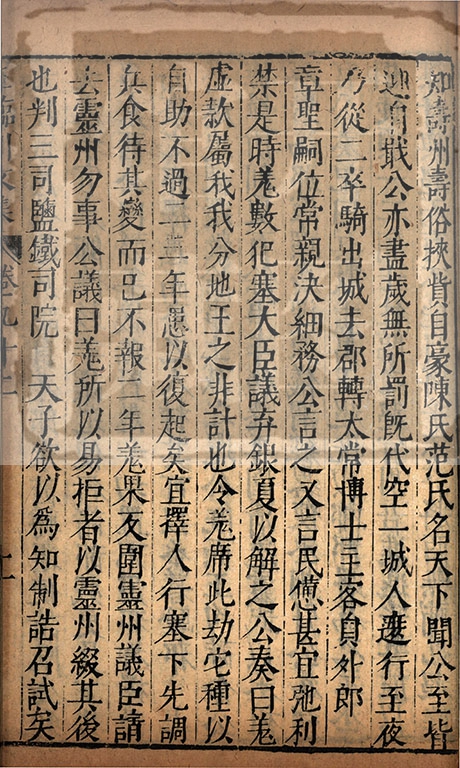 知壽州壽俗挾貲自豪陳氏范氏名天下聞公至皆
迎自戢公亦盡歲無所罰旣代空一城人遮行至夜
乃從二卒騎出城去郡轉太常博士主客員外郎
章聖嗣位常親決細務公言之又言民憊甚宜弛利
禁是時羗數犯塞大臣議弃銀夏以解之公奏曰羗
虛款屬我我分地王之非計也令羗席此劫它種以
自助不過二三年患以復起矣宜擇人行塞下先調
兵食待其變而已不報二年羗果反圍靈州議臣請
去靈州勿事公議曰羗所以易拒者以靈州綴其後
也判三司鹽鐵司院 天子欲以爲知制誥召試矣
臨川文集 卷九十二 十一